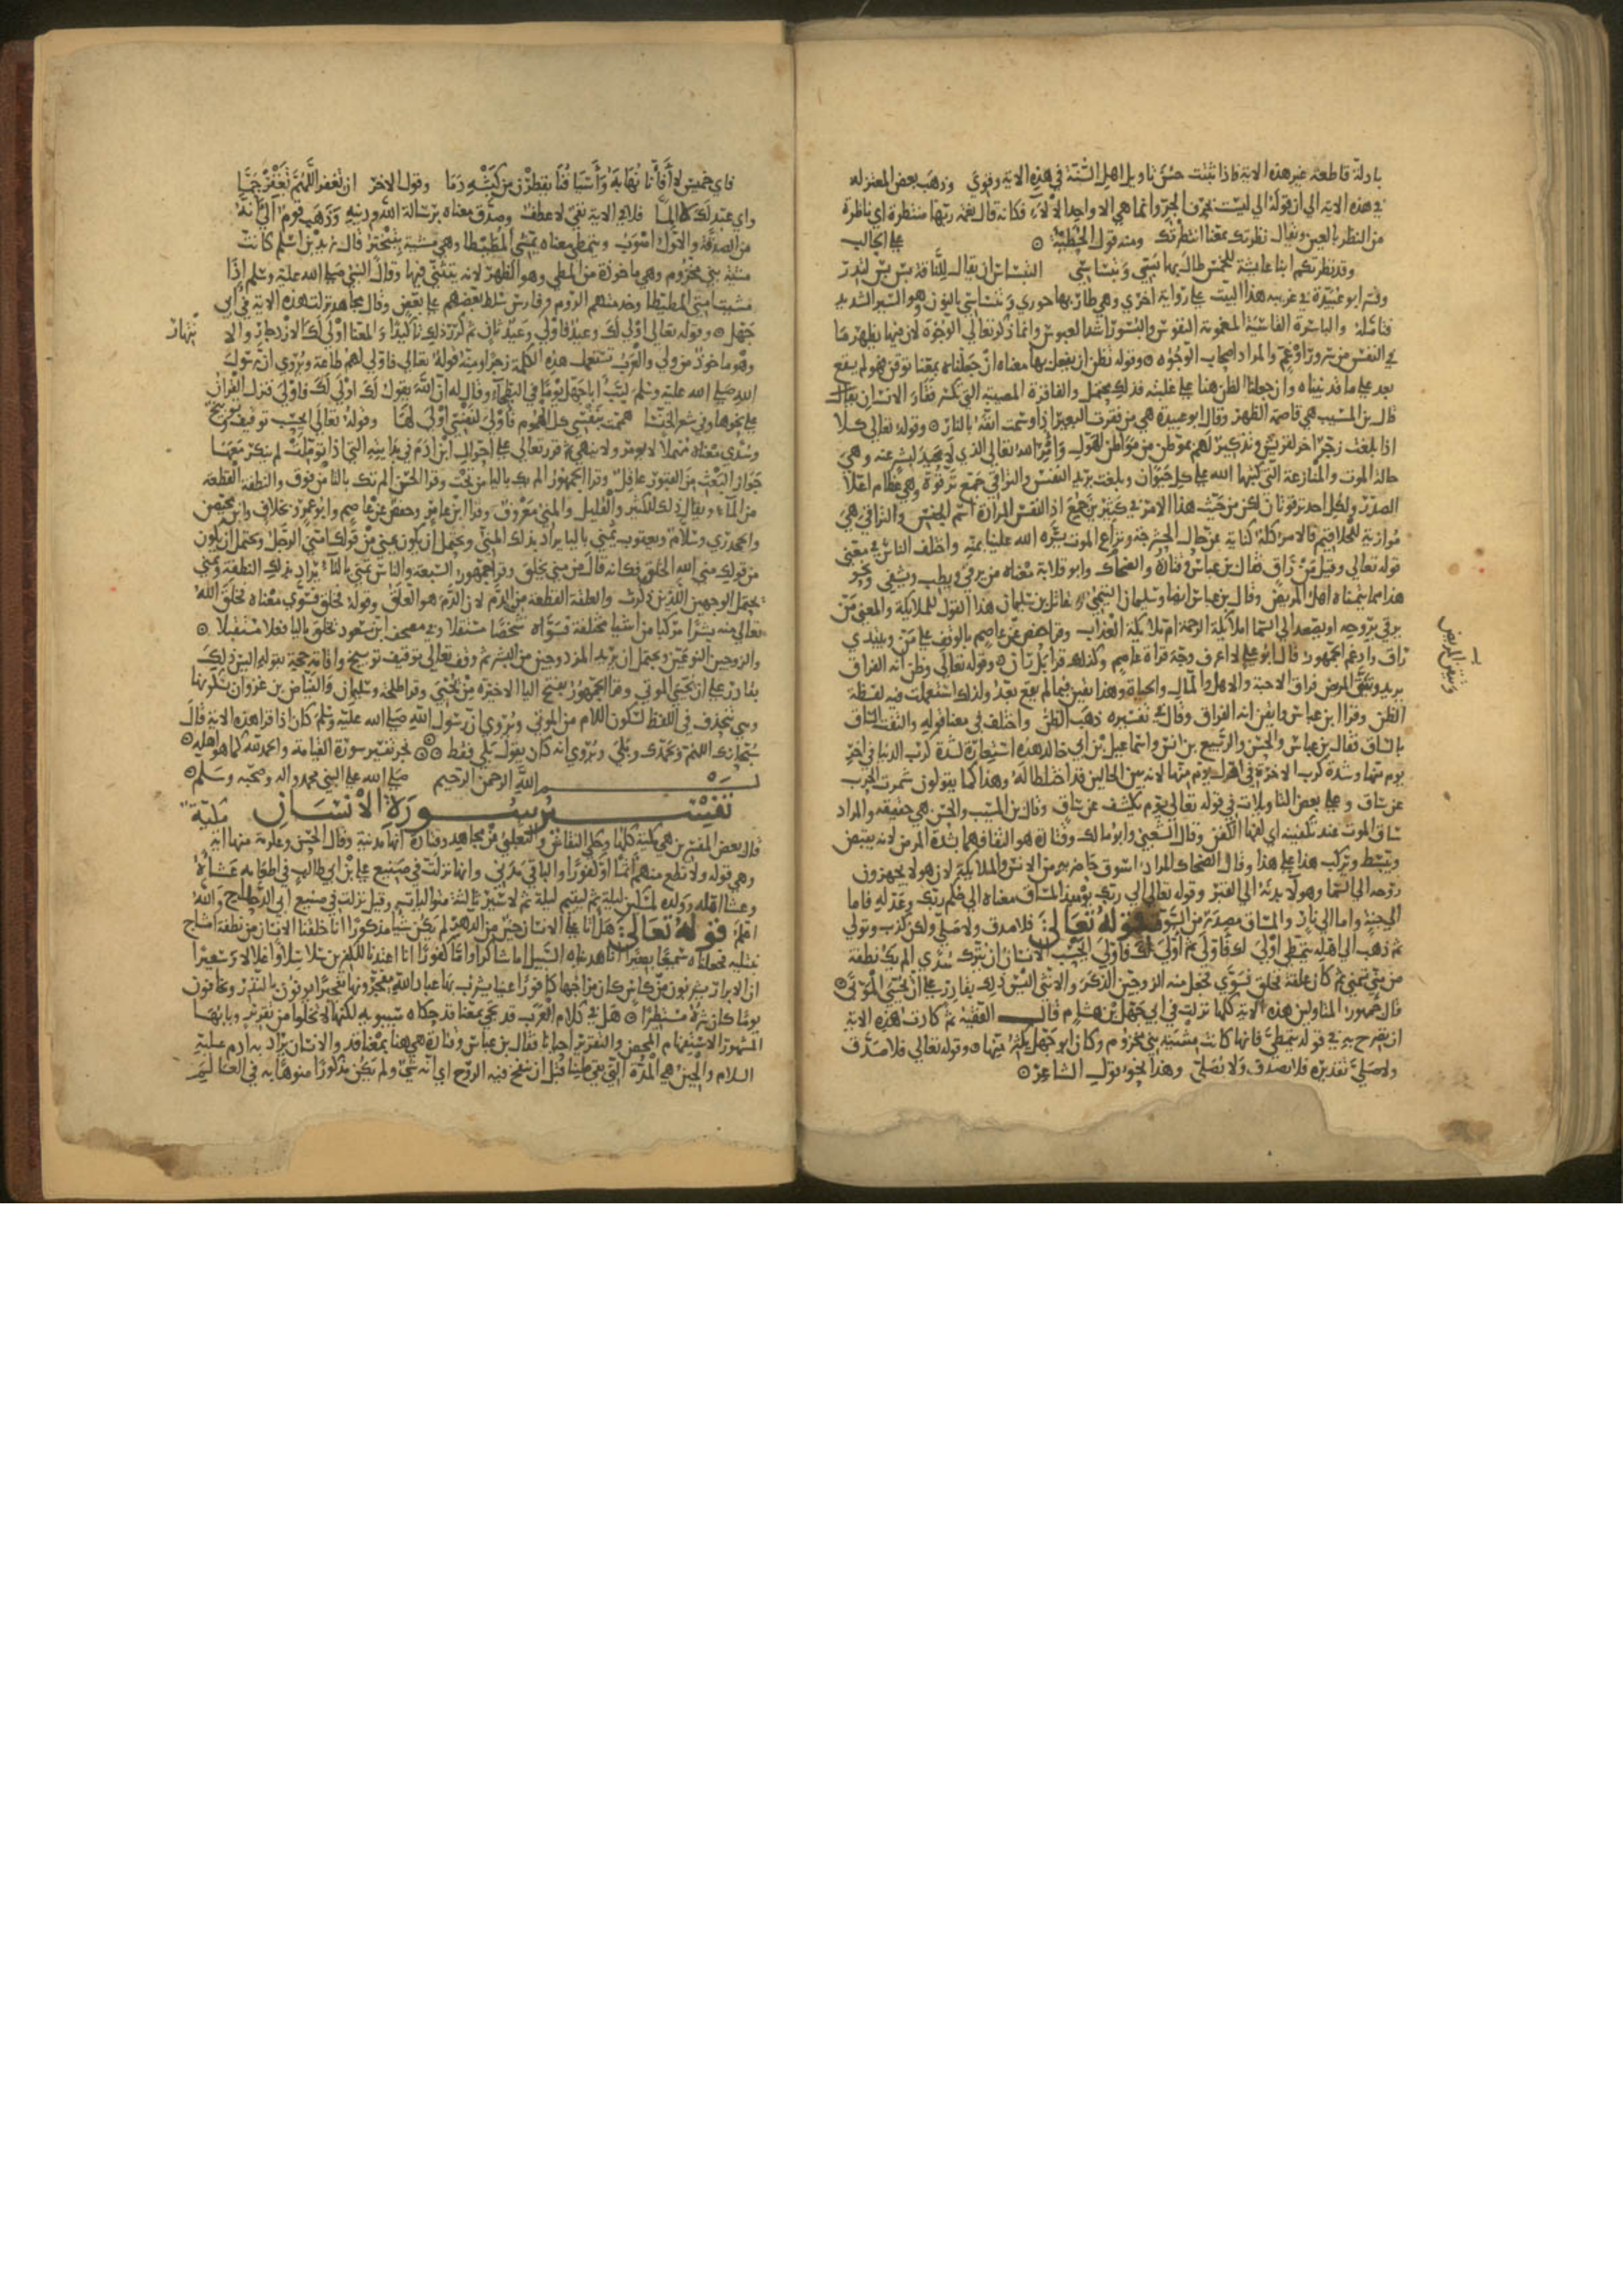 بادلة قاطعة غير هذه الاية فاذا ثبتت حسن تاويل اهل السنة في هذه الاية وقوي وذهب بعض المعتزلة
في هذه الاية الى ان قوله الى ليست بحرف الجر وانما هي الا واحد الالاء فكانه قال نعمة ربها منتظرة اي ناظرة
من النظر بالعين ويقال نظرتك بمعنا انتظرتك ومنه قول الحطيئة على الحالب
وقد نظرتكم ابنا عايشة للخمس طال بها تنساسي التنساس ان يقال للناقة بس بس لتدر
وفسر ابو عبيدة في غريبه هذا البيت على رواية اخرى وهي طال بها حوزي وتنساسي بالنون وهو السير الشديد
فتامله والباسرة العابسة المغمومة النفوس والبسور اشد العبوس وانما ذكر تعالى الوجوه لان فيها يظهر ما
في النفس من سرور او غم والمراد اصحاب الوجوه وقوله تظن ان يفعل بها معناه ان جعلناه بمعنا توقن فهو لم يقع
بعد على ما قد بيناه وان جعلنا الظن هنا على غلبته فذلك محتمل والفاقرة المصيبة التي تكسر فقار الانسان
قال بن المسيب هي قاصمة الظهر وقال ابو عبيدة هي من فقرت البعير اذا وسمت انفه بالنار وقوله تعالى كلا
اذا بلغت زجر اخر لقريش وتذكير لهم بموطن من مواطن الهول وامر الله تعالى الذي لا محيد لبشر عنه وهي
حالة الموت والمنازعة التي كتبها الله على كل حيوان وبلغت يريد النفس والتراقي جمع ترقوة وهي عظام اعلا
الصدر ولكل احد ترقوتان لكن من حيث هذا الامر في كثيرين جمع اذ النفس المرادة اسم الجنس والتراقي هي
موازية للحلاقيم فالامر كله كناية عن حال الحشرجة ونزاع الموت يسره الله علينا بمنه واختلف الناس في معنى
قوله تعالى وقيل من راق فقال بن عباس وقتادة والضحاك وابو قلابة معناه من يرقي ويطب ويشفي ونحو
هذا مما يتمناه اهل المريض وقال بن عباس ايضا وسليمان التيمي ومقاتل بن سليمان هذا القول للملايكة والمعنى من
يرقى بروحه اي يصعد الى السما املايكة الرحمة ام ملايكة العذاب وقرا حفص عن عاصم بالوقف على من ويبتدي
راق وادغم الجمهور قال ابو علي لا اعرف وجه قراة عاصم وكذلك قرا بل ران وقوله تعالى وظن انه الفراق
يريد وتيقن المريض فراق الاحبة والاهل والمال والحياة وهذا يقين فيما لم يقع بعد ولذلك استعملت فيه لفظة
الظن وقرا ابن عباس وايقن انه الفراق وقال في تفسيره ذهب الظن واختلف في معنا قوله والتفت الساق
بالساق فقال بن عباس والحسن والربيع بن انس واسماعيل بن ابي خالد هذه استعارة لشدة كرب الدنيا في اخر
يوم منها وشدة كرب الاخرة في اول يوم منها لانه بين الحالين قد اختلطا له وهذا كما يقولون شمرت الحرب
عن ساق وعلى بعض التاويلات في قوله تعالى يوم يكشف عن ساق وقال بن المسيب والحسن هي حقيقة والمراد
ساق الموت عند تكفينه اي لفهما الكفن وقال الشعبي وابو مالك وقتادة هو التفافهما بشدة المرض لانه يقبض
ويبسط ويركب هذا على هذا وقال الضحاك المراد اسوق حاضريه من الانس والملايكة لان هولا يجهزون
روحه الى السما وهولا بدنه الى القبر وقوله تعالى الى ربك يوميذ المساق معناه الى حكم ربك وعدله فاما
الى جنة واما الى نار والمساق مصدر من السوق قوله تعالى فلا صدق ولا صلى ولكن كذب وتولى
ثم ذهب الى اهله يتمطى اولى لك فاولى ثم اولى لك فاولى ايحسب الانسان ان يترك سدى الم يك نطفة
من مني تمنى ثم كان علقة فخلق فسوى فجعل منه الزوجين الذكر والانثى اليس ذلك بقادر على ان يحيي الموتى
قال جمهور المتاولين هذه الاية كلها نزلت في ابي جهل بن هشام قال الفقيه ثم كادت هذه الاية
ان تصرح به في قوله يتمطى فانها كانت مشية بني مخزوم وكان ابو جهل يكثر منها وقوله تعالى فلا صدق
ولا صلى تقديره فلم يصدق ولا يصلى وهذا نحو قول الشاعر
وتيقن المريض
فاي خميس لا افانا نهابه واسيافنا يقطرن من كبشه دما وقول الاخر ان تغفر اللهم تغفر جما
واي عبد لك لا الما فلا في الاية نفي لا عطف وصدق معناه برسالة الله ودينه وذهب قوم الى انه
من الصدقة والاول اصوب ويتمطى معناه يمشي المطيطا وهي مشية بتبختر قال زيد بن اسلم كانت
مشية بني مخزوم وهي ماخوذة من المطي وهو الظهر لانه يتثنى فيها وقال النبي صلى الله عليه وسلم اذا
مشت امتي المطيطا وخدمتهم الروم وفارس سلط بعضهم على بعض وقال مجاهد نزلت هذه الاية في ابي
جهل وقوله تعالى اولى لك وعيد فاولى وعيد ثان ثم كرر ذلك تاكيدا والمعنا اولى لك الازدجار والا
وهو ماخوذ من ولى والعرب تستعمل هذه الكلمة زجرا ومنه قوله تعالى فاولى لهم طاعة ويروى ان رسول
الله صلى الله عليه وسلم لبب ابا جهل يوما في البطحاء وقال له ان الله يقول لك اولى لك فاولى فنزل القران
على نحوها وفي شعر الخنسا هممت بنفسي كل الهموم فاولى لنفسي اولى لها وقوله تعالى ايحسب توقيف وتوبيخ
وسدى معناه مهملا لا يومر ولا ينهى ثم قرر تعالى على احوال ابن ادم في بدايته التي اذا تؤملت لم ينكر معها
جواز البعث من القبور عاقل وقرا الجمهور الم يك باليا من تحت وقرا الحسن الم تك بالتا من فوق والنطفة القطعة
من الماء ويقال ذلك للكثير والقليل والمني معروف وقرا ابن عامر وحفص عن عاصم وابو عمرو بخلاف وابن محيصن
والجحدري وسلام ويعقوب يمنى باليا يراد بذلك المني ويحتمل ان يكون يمنى من قولك امنى الرجل ويحتمل ان يكون
من قولك منى الله الخلق فكانه قال من مني يخلق وقرا جمهور السبعة والناس تمنى بالتاء يراد بذلك النطفة وتمنى
يحتمل الوجهين اللذين ذكرت والعلقة القطعة من الدم لان الدم هو العلق وقوله فخلق فسوى معناه فخلق الله
تعالى منه بشرا مركبا من اشيا مختلفة فسواه شخصا مستقلا وفي مصحف ابن مسعود يخلق باليا فعلا مستقبلا
والزوجين النوعين ويحتمل ان يريد المزدوجين من البشر ثم وقف تعالى توقيف توبيخ واقامة حجة بقوله اليس ذلك
بقادر على ان يحيي الموتى وقرا الجمهور بفتح اليا الاخيرة من يحيي وقرا طلحة وسليمان والفياض بن غزوان بسكونها
وهي تنحذف في اللفظ لسكون اللام من الموتى ويروى ان رسول الله صلى الله عليه وسلم كان اذا قرا هذه الاية قال
سبحانك اللهم وبحمدك وبلى ويروى انه كان يقول بلى فقط نجز تفسير سورة القيامة والحمد لله كما هو اهله
بسم الله الرحمن الرحيم صلى الله على النبي محمد واله وصحبه وسلم
تفسير سورة الانسان مكية
قال بعض المفسرين هي مكية كلها وحكى النقاش والثعلبي عن مجاهد وقتادة انها مدنية وقال الحسن وعكرمة منها اية
وهي قوله ولا تطع منهم اثما او كفورا والباقي مدني وانها نزلت في صنيع علي بن ابي طالب في اطعامه عشاه
وعشا اهله وولده لمسكين ليلة ثم ليتيم ليلة ثم لاسير ثالثة متواليات وقيل نزلت في صنيع ابي الدحداح والله
اعلم قوله تعالى هل اتى على الانسان حين من الدهر لم يكن شيا مذكورا انا خلقنا الانسان من نطفة امشاج
نبتليه فجعلناه سميعا بصيرا انا هديناه السبيل اما شاكرا واما كفورا انا اعتدنا للكفرين سلاسلا واغلالا وسعيرا
ان الابرار يشربون من كاس كان مزاجها كافورا عينا يشرب بها عباد الله يفجرونها تفجيرا يوفون بالنذر ويخافون
يوما كان شره مستطيرا هل في كلام العرب قد تجي بمعنا قد حكاه سيبويه لكنها لا تخلوا من تقرير وبابها
المشهور الاستفهام المحض والتقرير احيانا فقال بن عباس وقتادة هي هنا بمعنا قد والانسان يراد به ادم عليه
السلام والحين هي المدة التي بقي طينا قبل ان ينفخ فيه الروح اي انه شي ولم يكن مذكورا منوها به في العالم